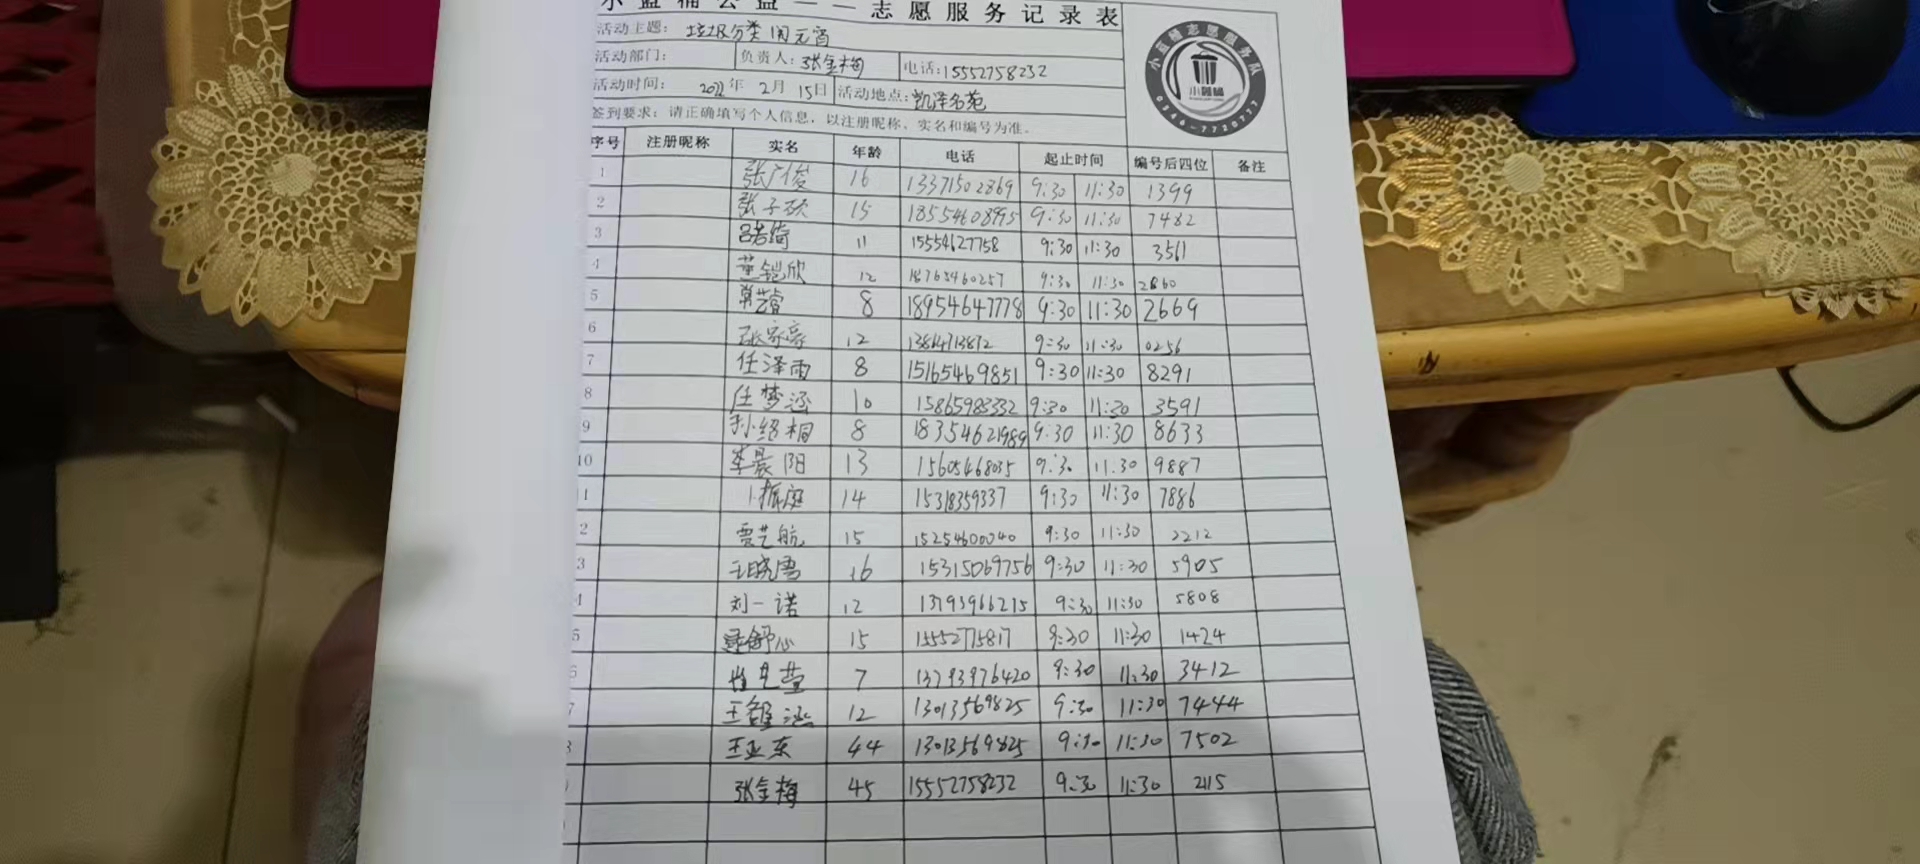 小蓝桶公益——志愿服务记录表
活动主题： 垃圾分类闹元宵
活动部门： 负责人：张金梅 电话：15552758232
活动时间： 2022年 2月 15日 活动地点：凯泽名苑
签到要求：请正确填写个人信息，以注册昵称、实名和编号为准。
小蓝桶志愿服务队
小蓝桶
0546-7720777
序号 注册昵称 实名 年龄 电话 起止时间 编号后四位 备注
1 张广俊 16 13371502869 9:30 11:30 1399
2 张子硕 15 18554608995 9:30 11:30 7482
3 吕若绮 11 15554627758 9:30 11:30 3561
4 董铠欣 12 18765460257 9:30 11:30 2860
5 8 18954647778 9:30 11:30 2669
6 张家豪 12 9:30 11:30 0256
7 任泽雨 8 15165469851 9:30 11:30 8291
8 任梦涵 10 15865983332 9:30 11:30 3591
9 孙绍桐 8 18354621989 9:30 11:30 8633
10 李晨阳 13 15605468035 9:30 11:30 9887
1 振庭 14 15318359337 9:30 11:30 7886
2 贾艺航 15 15254600040 9:30 11:30 2212
3 王晓雪 16 15315069756 9:30 11:30 5905
4 刘一诺 12 13793966215 9:30 11:30 5808
5 舒心 15 15552775817 9:30 11:30 1424
6 7 13793976420 9:30 11:30 3412
7 王 涵 12 13013569825 9:30 11:30 7444
8 王亚东 44 13013569825 9:30 11:30 7502
张金梅 45 15552758232 9:30 11:30 2115